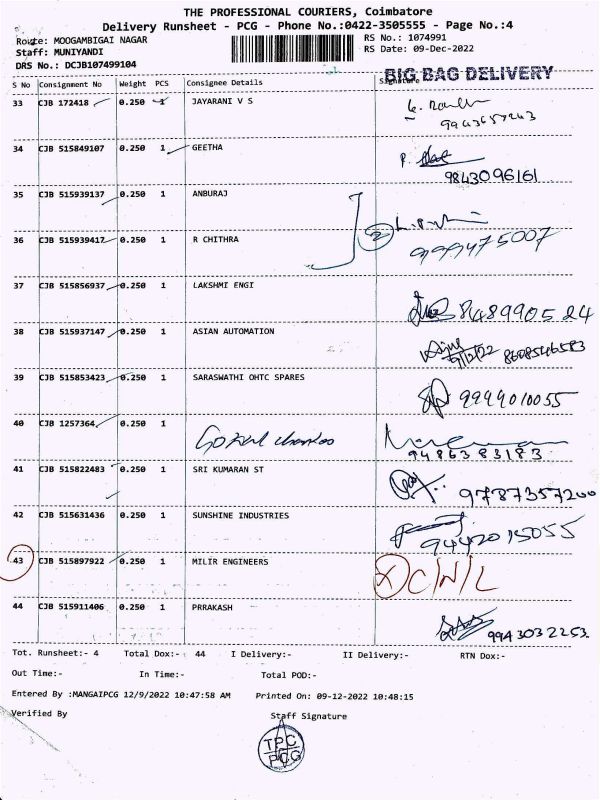 THE PROFESSIONAL COURIERS, Coimbatore
Delivery Runsheet - PCG - Phone No.:0422-3505555 - Page No.:4
Route: MOOGAMBIGAI NAGAR
Staff: MUNIYANDI
DRS No.: DCJB107499104
RS No.: 1074991
RS Date: 09-Dec-2022
BIG BAG DELIVERY
S No Consignment No Weight PCS Consignee Details Signature
33 CJB 172418 0.250 1 JAYARANI V S
9943657243
34 CJB 515849107 0.250 1 GEETHA
9843096161
35 CJB 515939137 0.250 1 ANBURAJ
36 CJB 515939417 0.250 1 R CHITHRA
2
999475007
37 CJB 515856937 0.250 1 LAKSHMI ENGI
848990524
38 CJB 515937147 0.250 1 ASIAN AUTOMATION
9/12/22 8608546583
39 CJB 515853423 0.250 1 SARASWATHI OHTC SPARES
9994010055
40 CJB 1257364 0.250 1
9486383183
41 CJB 515822483 0.250 1 SRI KUMARAN ST
9787357200
42 CJB 515631436 0.250 1 SUNSHINE INDUSTRIES
9442015055
43 CJB 515897922 0.250 1 MILIR ENGINEERS
X C/N/L
44 CJB 515911406 0.250 1 PRRAKASH
9943032253
Tot. Runsheet:- 4 Total Dox:- 44 I Delivery:- II Delivery:- RTN Dox:-
Out Time:- In Time:- Total POD:-
Entered By :MANGAIPCG 12/9/2022 10:47:58 AM Printed On: 09-12-2022 10:48:15
Verified By Staff Signature
TPC
PCG